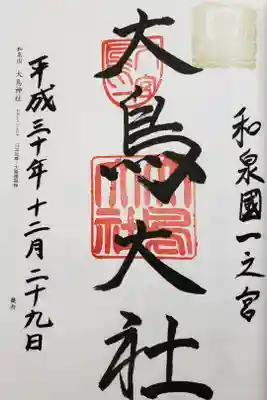 和泉國一之宮
大鳥大社
平成三十年十二月二十九日
和泉国 大鳥神社